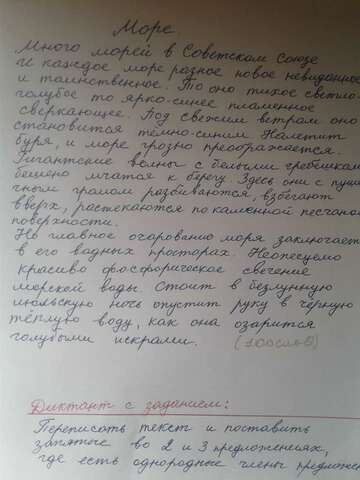 Море.
Много морей в Советском Союзе
и каждое море разное новое невиданное
и таинственное. То оно тихое светло-
голубое то ярко-синее пламенное
сверкающее. Под свежим ветром оно
становится тёмно-синим. Налетит
буря, и море грозно преображается.
Гигантские волны с белыми гребешкам
бешено мчатся к берегу. Здесь они с пуше
чным громом разбиваются, взбегают
вверх, растекаются по каменной песчано
поверхности.
Но главное очарование моря заключает
в его водных просторах. Неописуемо
красиво фосфорическое свечение
морской воды. Стоит в безлунную
июльскую ночь опустить руку в чёрную
тёплую воду, как она озарится
голубыми искрами. (100слов)
Диктант с заданием:
Переписать текст и поставить
запятые во 2 и 3 предложениях,
где есть однородные члены предложен